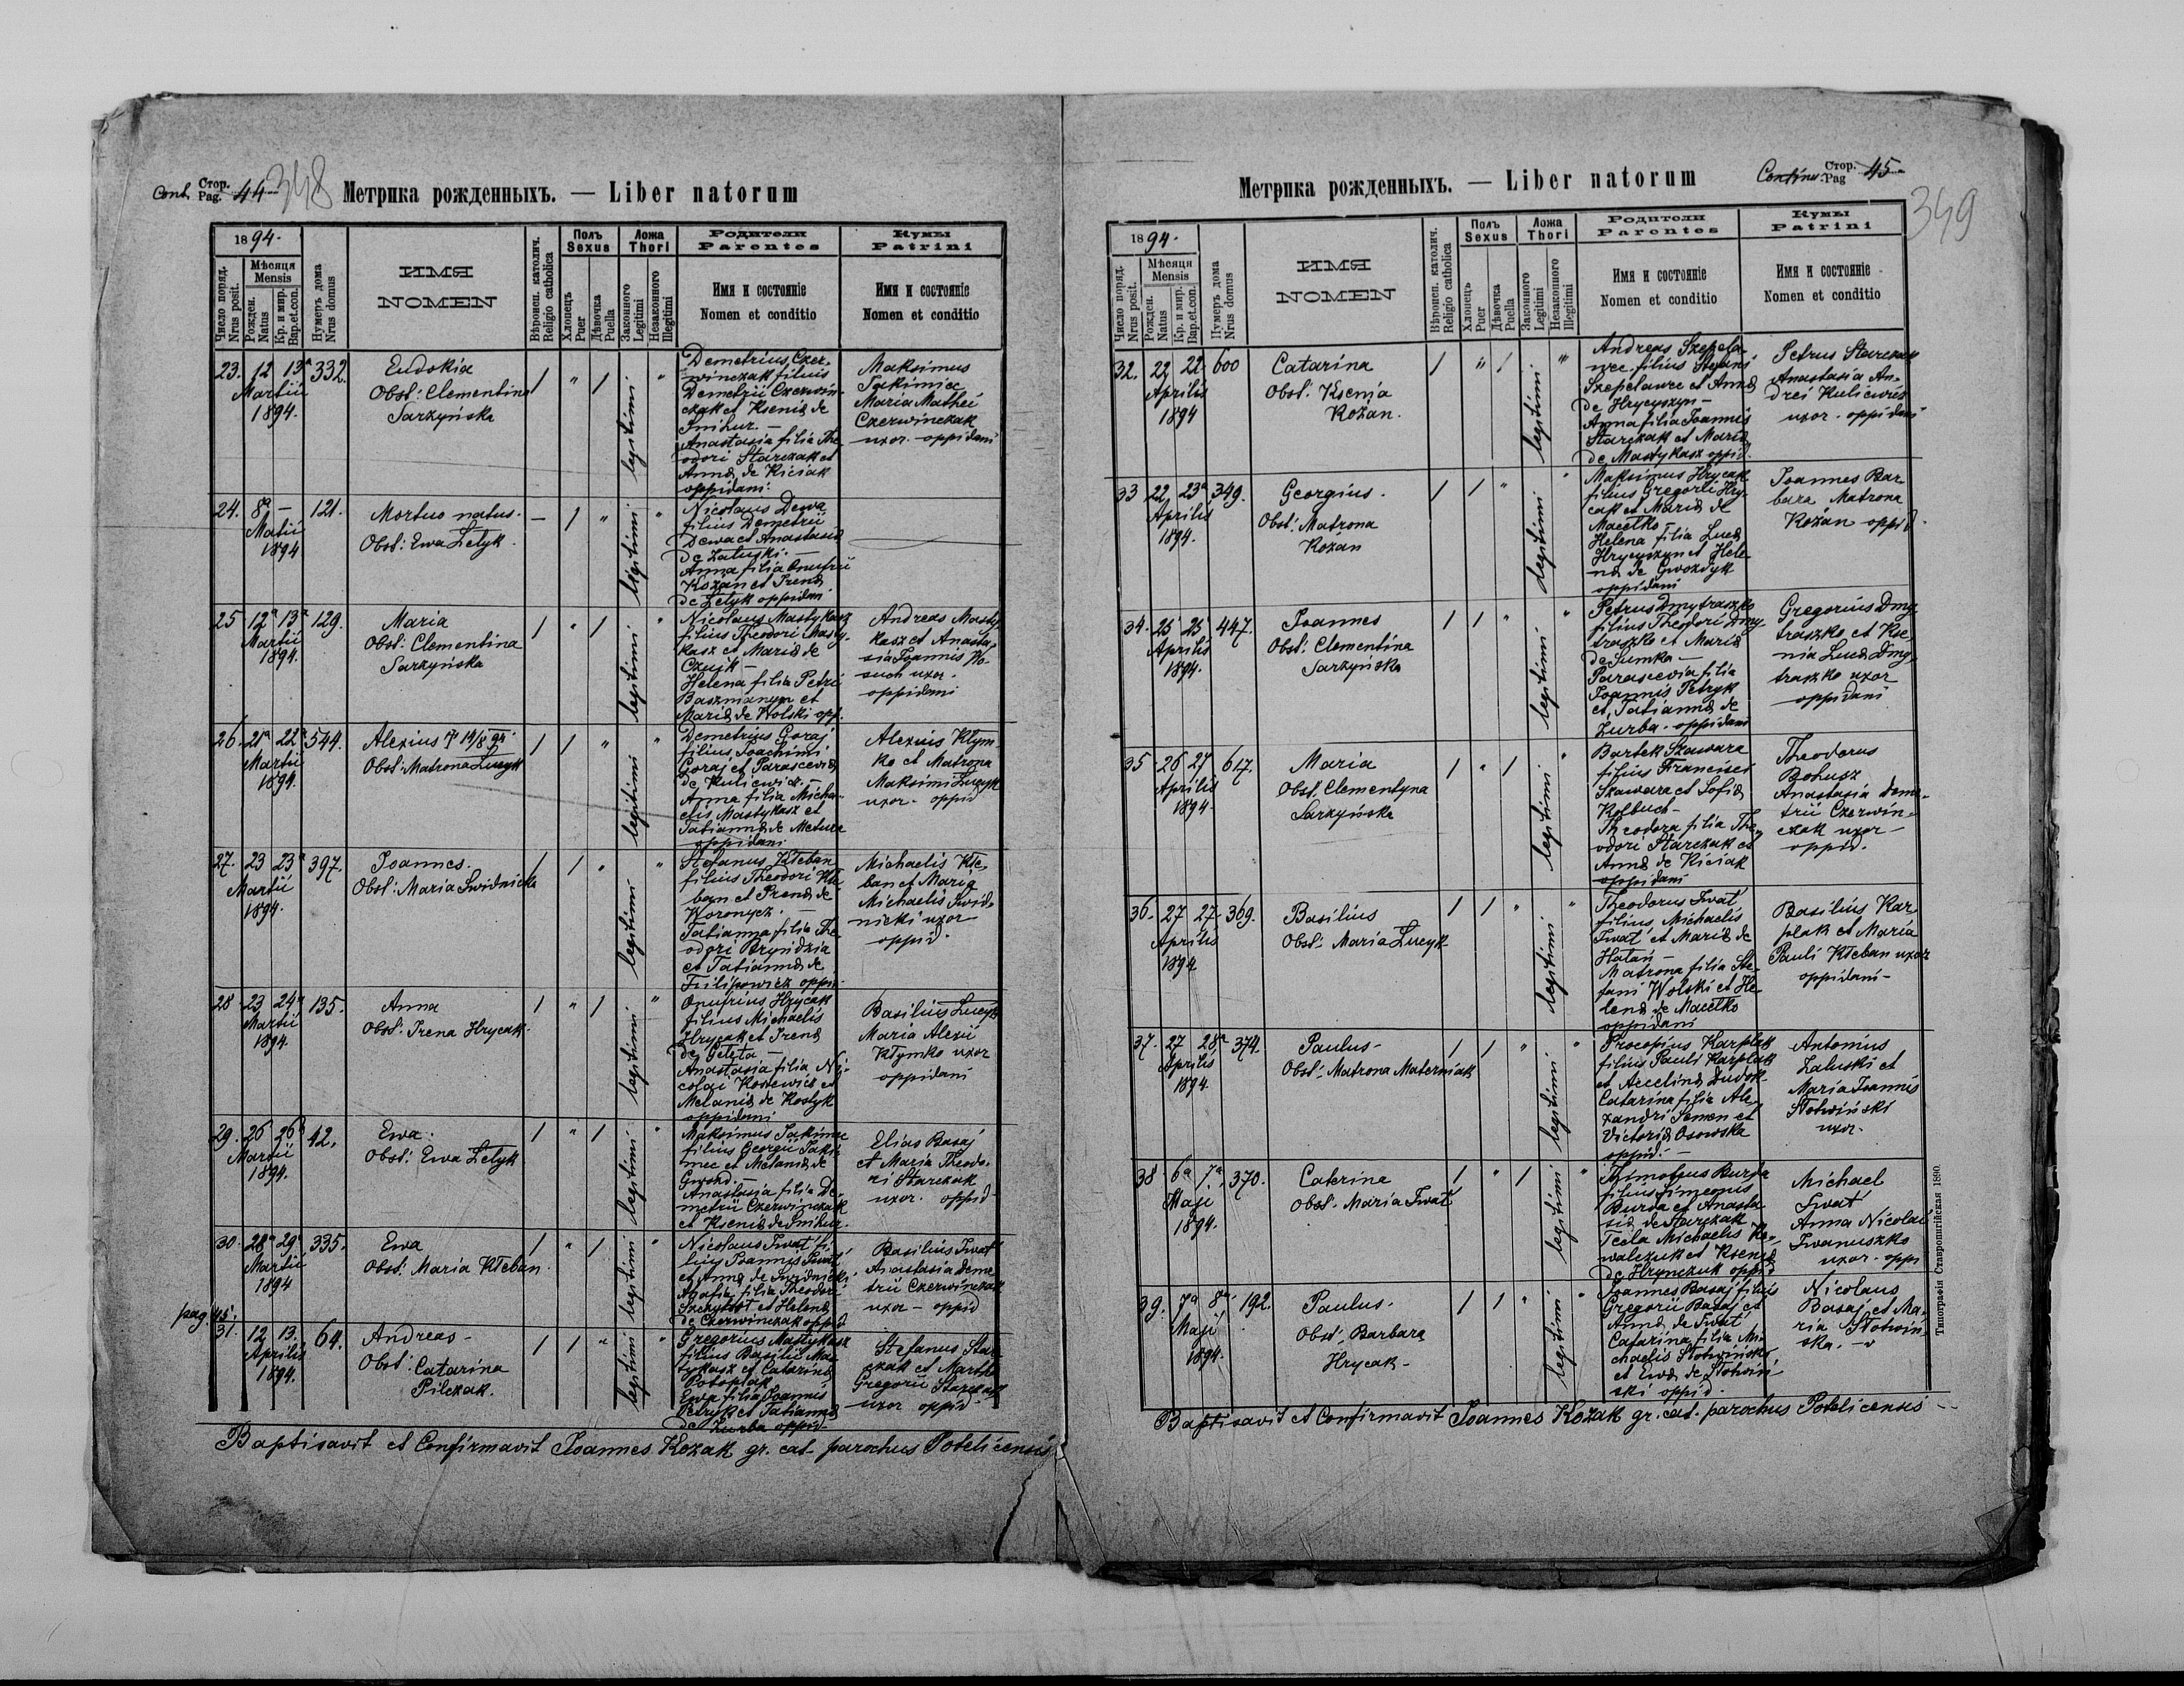 Cont. Стор. Pag. 44 348
Метрика рожденныхъ. — Liber natorum
1894.
Число поряд. Nrus posit.
Мѣсяця Mensis
Рожден. Natus
Кр. и мир. Bap. et. con.
Нумеръ дома Nrus domus
ИМЯ
NOMEN
Вѣроисп. католич. Religio catholica
Полъ Sexus
Хлопецъ Puer
Дѣвочка Puella
Ложа Thori
Законного Legitimi
Незаконного Illegitimi
Родители Parentes
Имя и состоянiе
Nomen et conditio
Кумы Patrini
Имя и состоянiе
Nomen et conditio
23. 12 13ª 332.
Martii
1894.
Eudokia
Obst: Clementina
Sarzyńska
1 " 1 legitimi "
Demetrius Czer-
winczak filius
Demetrii Czerwin-
czak et Ksenia de
Anastasia filia The-
odori Starczak et
Anna de Kiciak
oppidani.
Maksimus
Jakimiec
Maria Mathei
Czerwinczak
uxor - oppidani
24. 8ª — 121.
Martii
1894
Mortuo natus.
Obst: Ewa Letyk.
— 1 " legitimi "
Nicolaus Dewa
filius Demetrii
Dewa et Anastasia
de Zaluski. —
Anna filia Onufrii
Kozan et Irena
de Letyk oppidani
25 12ª 13ª 129.
Martii
1894.
Maria
Obst: Clementina
Sarzyńska
1 " 1 legitimi "
Nicolaus Mastykasz
filius Theodori Masty-
kasz et Maria de
Czujk —
Helena filia Petri
Baszmianym et
Maria de Wolski opp.
Andreas Masty-
kasz et Anasta-
sia Joannis Wo-
such uxor.
oppidani
26. 21ª 22ª 544.
Martii
1894.
Alexius 19/8 94.
Obst: Matrona Lucyk
1 1 " legitimi "
Demetrius Goraj
filius Joachimi
Goraj et Parascevia
de Kulicwic. —
Anna filia Micha-
elis Mastykasz et
Tatianna de Metura
oppidani
Alexius Klym-
ko et Matrona
Maksimi Lucyk
uxor - oppid
27. 23 23ª 397.
Martii
1894.
Joannes.
Obst: Maria Swidnicka
1 1 " legitimi "
Stefanus Kłeban
filius Theodori Kłe-
ban et Irena de
Koronycz. —
Tatianna filia The-
odori Bryndzia
et Tatianna de
Filipowicz oppi.
Michaelis Kłe-
ban et Maria
Michaelis Swid-
nicki uxor
oppid.
28 23 24ª 135.
Martii
1894.
Anna
Obst: Irena Hrycak.
1 " 1 legitimi "
Onufrius Hrycak
filius Michaelis
Hrycak et Irena
de Geleta —
Anastasia filia Ni-
colai Kostewicz et
Melania de Kostyk
oppidani
Basilius Lucyk
Maria Alexii
Kłymko uxor
oppidani
29. 26 26ª 42.
Martii
1894.
Ewa.
Obst: Ewa Letyk
1 " 1 legitimi "
Maksimus Jakimec
filius Georgii Jaki-
mec et Melania de
Gwozd. —
Anastasia filia De-
metrii Czerwinczak
et Ksenia de Snihur.
Elias Basaj
et Maria Theodo-
ri Starczak
uxor. oppid.
30. 28ª 29. 335.
Martii
1894
Ewa
Obst: Maria Kłeban.
1 " 1 legitimi "
Nicolaus Iwat fi-
lius Joannis Iwat
et Anna de Swidnicki
Agafia filia Theodori
et Helena
de Czerwinczak oppid
Basilius Iwat
Anastasia Deme-
trii Czerwinczak
uxor — oppid
pag. 45:
31. 12 13. 64.
Aprilis
1894.
Andreas -
Obst: Catarina
Pilczak.
1 1 " legitimi "
Gregorius Mastykasz
filius Basilii Mas-
tykasz et Catarina
Potopiak
Ewa filia Joannis
Petryk et Tatianna
de Zurba oppid
Stefanus Star-
czak et Martha
Gregorii Starczak
uxor oppid.
Baptisavit et Confirmavit Joannes Kozak gr. cat. parochus Potelicensis
Метрика рожденныхъ. — Liber natorum
Continu. Стор. Pag 45
349
1894.
Число поряд. Nrus posit.
Мѣсяця Mensis
Рожден. Natus
Кр. и мир. Bap. et. con.
Нумеръ дома Nrus domus
ИМЯ
NOMEN
Вѣроисп. католич. Religio catholica
Полъ Sexus
Хлопецъ Puer
Дѣвочка Puella
Ложа Thori
Законного Legitimi
Незаконного Illegitimi
Родители Parentes
Имя и состоянiе
Nomen et conditio
Кумы Patrini
Имя и состоянiе
Nomen et conditio
32. 22 22 600
Aprilis
1894
Catarina
Obst: Ksenja
Kozan.
1 " 1 legitimi "
Andreas Szepela-
wec filius Stefani
Szepelawec et Anna
de Hrycyszyn —
Anna filia Joannis
Starczak et Maria
de Mastykasz oppid.
Petrus Starczak
Anastasia An-
drei Kulicwics
uxor - oppidani
33 22 23ª 349.
Aprilis
1894.
Georgius.
Obst: Matrona
Kozán
1 1 " legitimi "
Maksimus Hrycak
filius Gregorii Hry-
cak et Maria de
Macełko —
Helena filia Luca
Hrycyszyn et Hele-
na de Gwozdyk
oppidani
Joannes Bar-
bara Matrona
Kozán oppid.
34. 25 25 447.
Aprilis
1894.
Joannes
Obst: Clementina
Sarzyńska
1 1 " legitimi "
Petrus Dmytraszko
filius Theodori Dmy-
traszko et Maria
de Sumka —
Parascevia filia
Joannis Petryk
et Tatianna de
Zurba - oppidani
Gregorius Dmy-
traszko et Kse-
nia Luca Dmy-
traszko uxor
oppidani
35 26 27 617.
Aprilis
1894.
Maria
Obst: Clementyna
Sarzyńska
1 " 1 legitimi "
Bartek Szawara
filius Francisci
Szawara et Sofia
Kolbuch —
Theodora filia The-
odori Starczak et
Anna de Kiciak
oppidani
Theodorus
Bohusz
Anastasia Deme-
trii Czerwin-
czak uxor —
oppid.
36. 27 27 369.
Aprilis
1894
Basilius
Obst: Maria Lucyk
1 1 " legitimi "
Theodorus Iwat
filius Michaelis
Iwat et Maria de
Hatań —
Matrona filia Ste-
fani Wolski et He-
lena de Macełko
oppidani
Basilius Kar-
plak et Maria
Pauli Kłeban uxor
oppidani —
37. 27 28ª 374.
Aprilis
1894.
Paulus -
Obst: Matrona Materniak
1 1 " legitimi "
Procopius Karplak
filius Pauli Karplak
et Acelina Dudok
Catarina filia Ale-
xandri Semen et
Victoria Osowska
oppid. —
Antonius
Zaluski et
Maria Joannis
Słotwiński
uxor.
38 6ª 7ª 370.
Maji
1894.
Caterina
Obst: Maria Iwat
1 " 1 legitimi "
Thimoteus Burda
filius Simeonis
Burda et Anasta-
sia de Starczak
Tecla Michaelis Ko-
walczuk et Ksenia
de Hrynczuk oppid
Michael
Iwat
Anna Nicolai
Iwanuszko
uxor - oppi
39. 7ª 8ª 192.
Maji
1894.
Paulus.
Obst: Barbara
Hrycak -
1 1 " legitimi "
Joannes Basaj filius
Gregorii Basaj et
Anna de Iwat
Catarina filia Mi-
chaelis Słotwiński
et Ewa de Słotwin-
ski oppid.
Nicolaus
Basaj et Ma-
ria Słotwin-
ska.
Baptisavit et Confirmavit Joannes Kozak gr. cat. parochus Potelicensis
Типографія Ставропигійская 1890.